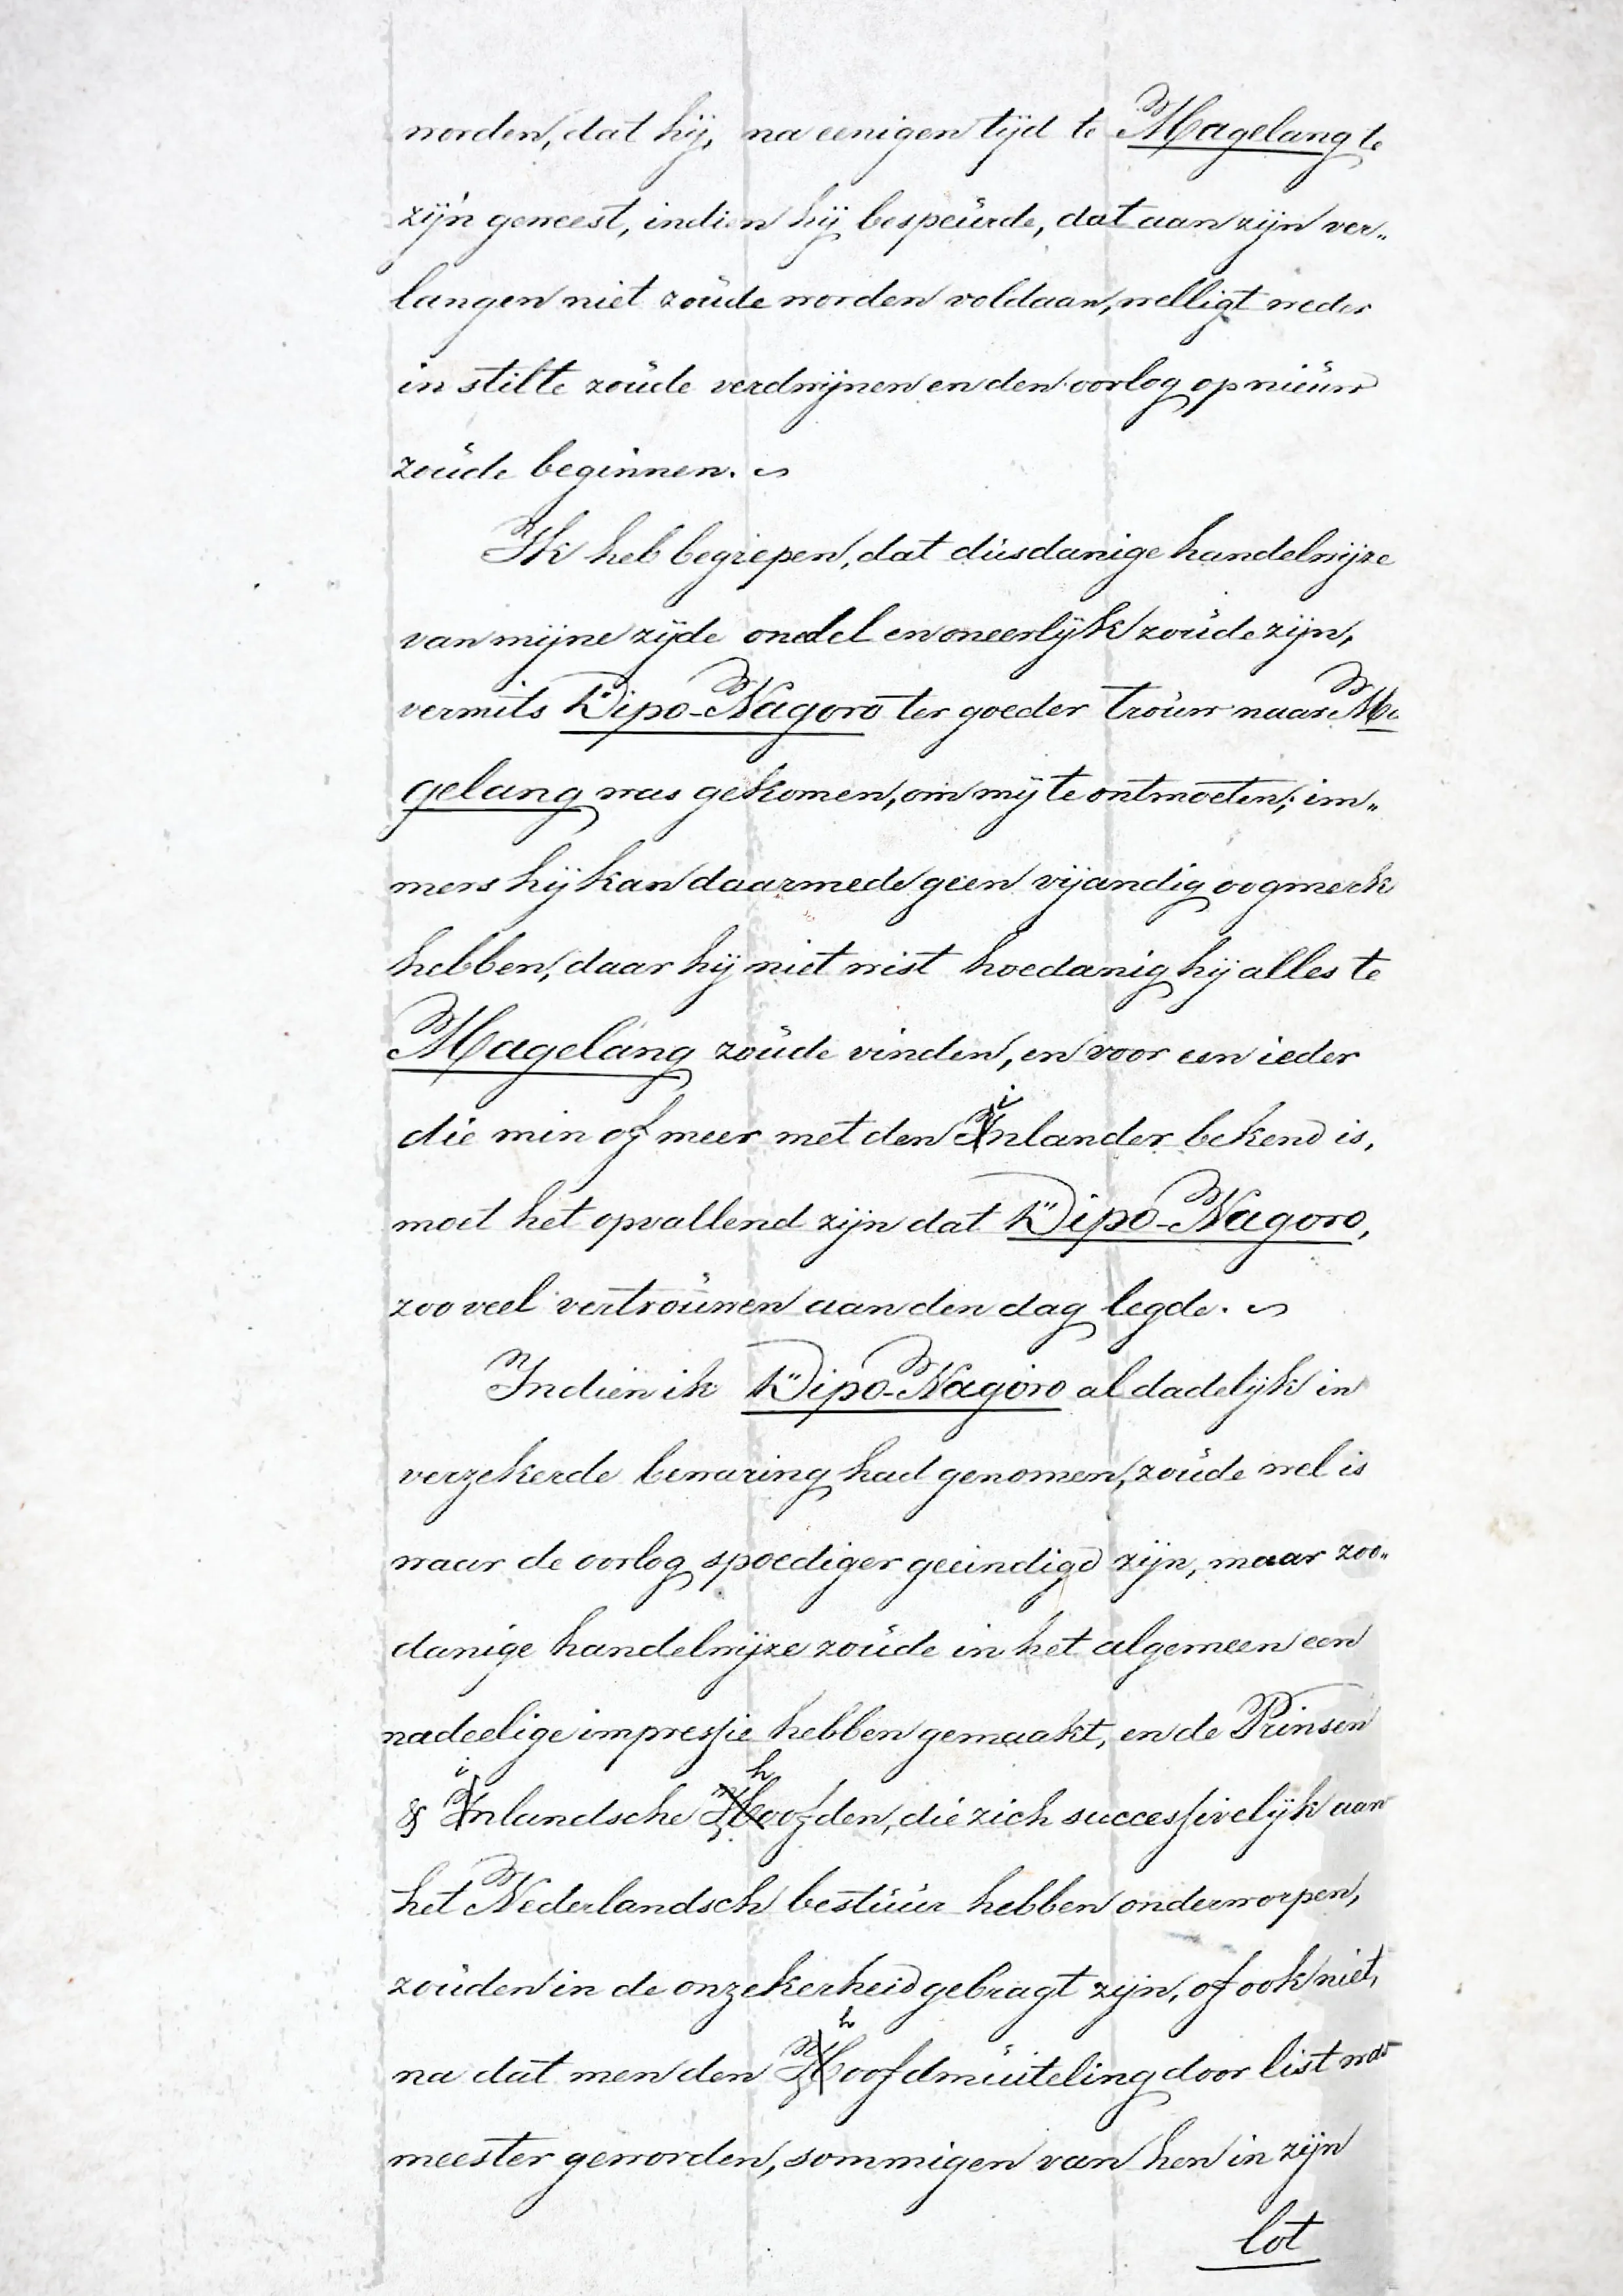 worden, dat hij, na eenigen tijd te Magelang te
zijn geweest, indien hij bespeurde, dat aan zijn ver„
langen niet zoude worden voldaan, welligt weder
in stilte zoude verdwijnen en den oorlog op nieuw
zoude beginnen.
Ik heb begrepen, dat dusdanige handelwijze
van mijne zijde onedel en oneerlijk zoude zijn,
vermits Dipo-Nagoro ter goeder trouw naar Ma
gelang was gekomen, om mij te ontmoeten; im„
mers hij kan daarmede geen vijandig oogmerk
hebben, daar hij niet wist hoedanig hij alles te
Magelang zoude vinden, en voor een ieder
die min of meer met den inlander bekend is,
moet het opvallend zijn dat Dipo-Nagoro,
zoo veel vertrouwen aan den dag legde.
Indien ik Dipo-Nagoro al dadelijk in
verzekerde bewaring had genomen, zoude wel is
waar de oorlog spoediger geeindigd zijn, maar zoo„
danige handelwijze zoude in het algemeen een
nadeelige impressie hebben gemaakt, en de Prinsen
& inlandsche hoofden, die zich successivelijk aan
het Nederlandsch bestuur hebben onderworpen,
zouden in de onzekerheid gebragt zijn, of ook niet,
na dat men den hoofdmuiteling door list was
meester geworden, sommigen van hen in zijn
lot